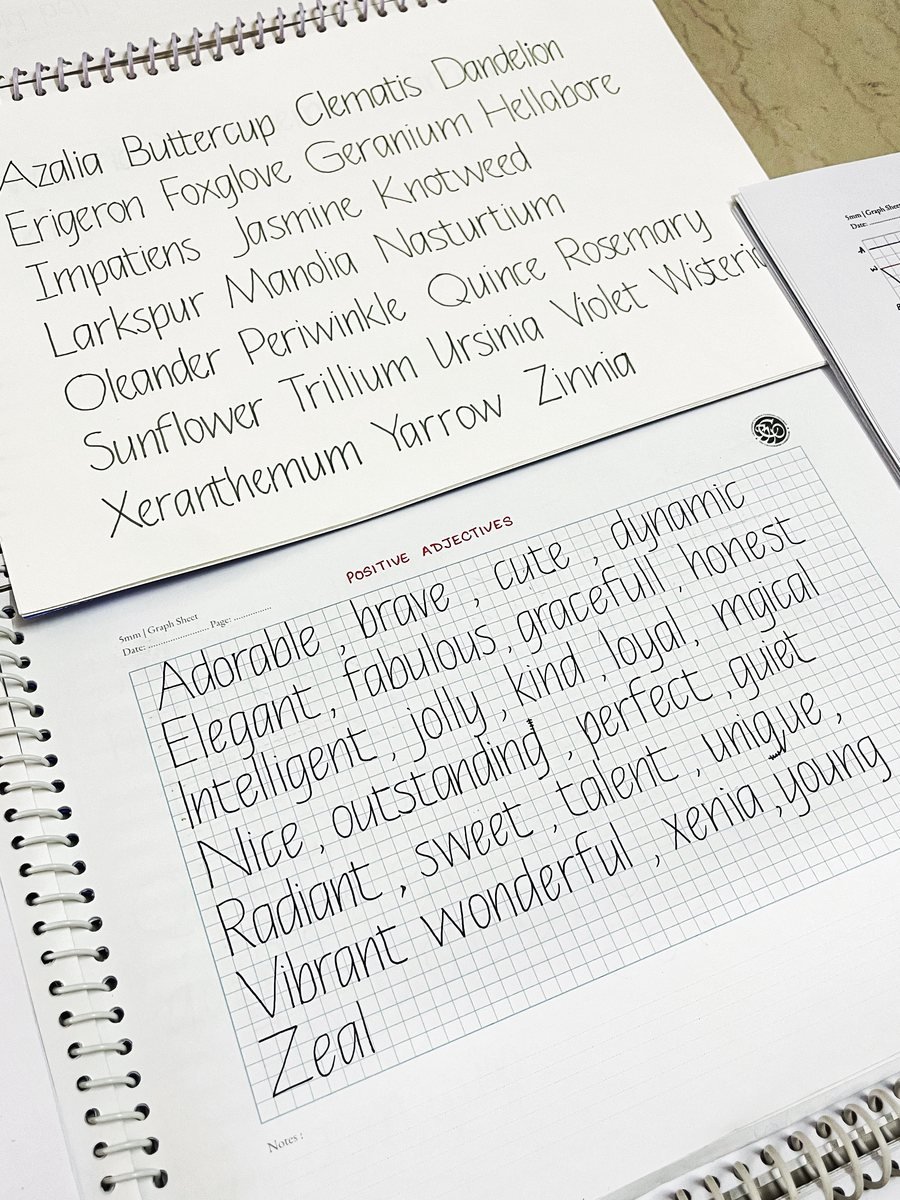 Azalia Buttercup Clematis Dandelion
Erigeron Foxglove Geranium Hellabore
Impatiens Jasmine Knotweed
Larkspur Manolia Nasturtium
Oleander Periwinkle Quince Rosemary
Sunflower Trillium Ursinia Violet Wisteria
Xeranthemum Yarrow Zinnia
5mm | Graph Sheet
Date:
POSITIVE ADJECTIVES
5mm | Graph Sheet
Date: Page:
Adorable, brave, cute, dynamic
Elegant, fabulous, gracefull, honest
Intelligent, jolly, kind, loyal, mgical
Nice, outstanding, perfect, quiet
Radiant, sweet, talent, unique,
Vibrant wonderful, xenia, young
Zeal
Notes :